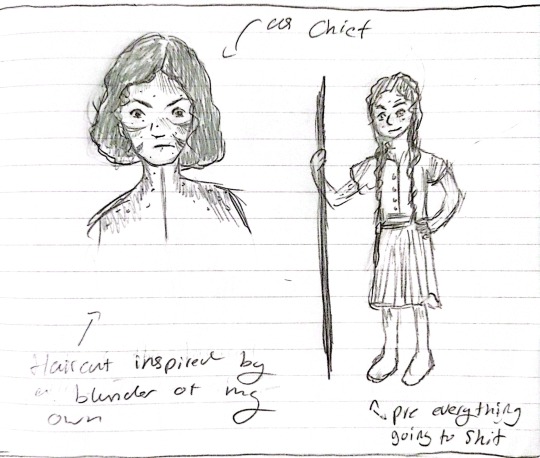 as Chief
Haircut inspired by
a blunder of my
own
pre everything
going to shit